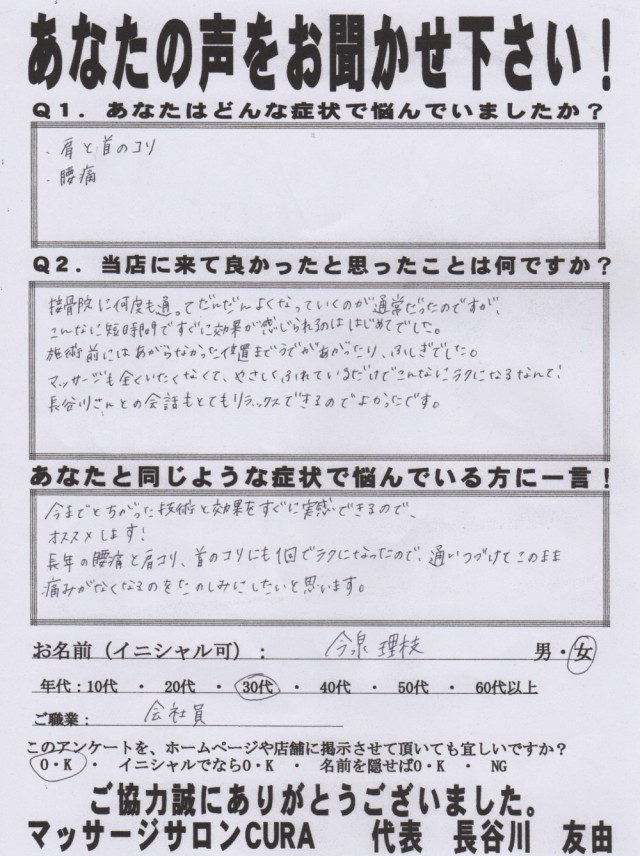 あなたの声をお聞かせ下さい！
Q1．あなたはどんな症状で悩んでいましたか？
・肩と首のコリ
・腰痛
Q2．当店に来て良かったと思ったことは何ですか？
接骨院に何度も通ってだんだんよくなっていくのが通常だったのですが、
こんなに短時間ですぐに効果が感じられるのははじめてでした。
施術前にはあがらなかった位置までうでがあがったり、ふしぎでした。
マッサージも全くいたくなくて、やさしくふれているだけでこんなにラクになるなんて！
長谷川さんとの会話もとてもリラックスできるのでよかったです。
あなたと同じような症状で悩んでいる方に一言！
今までとちがった技術と効果をすぐに実感できるので、
オススメします！
長年の腰痛と肩コリ、首のコリにも1回でラクになったので、通いつづけてこのまま
痛みがなくなるのをたのしみにしたいと思います。
お名前（イニシャル可）： 今泉 理枝 男・女
年代：10代 ・ 20代 ・ 30代 ・ 40代 ・ 50代 ・ 60代以上
ご職業： 会社員
このアンケートを、ホームページや店舗に掲示させて頂いても宜しいですか？
O・K ・ イニシャルでならO・K ・ 名前を隠せばO・K ・ NG
ご協力誠にありがとうございました。
マッサージサロンCURA 代表 長谷川 友由